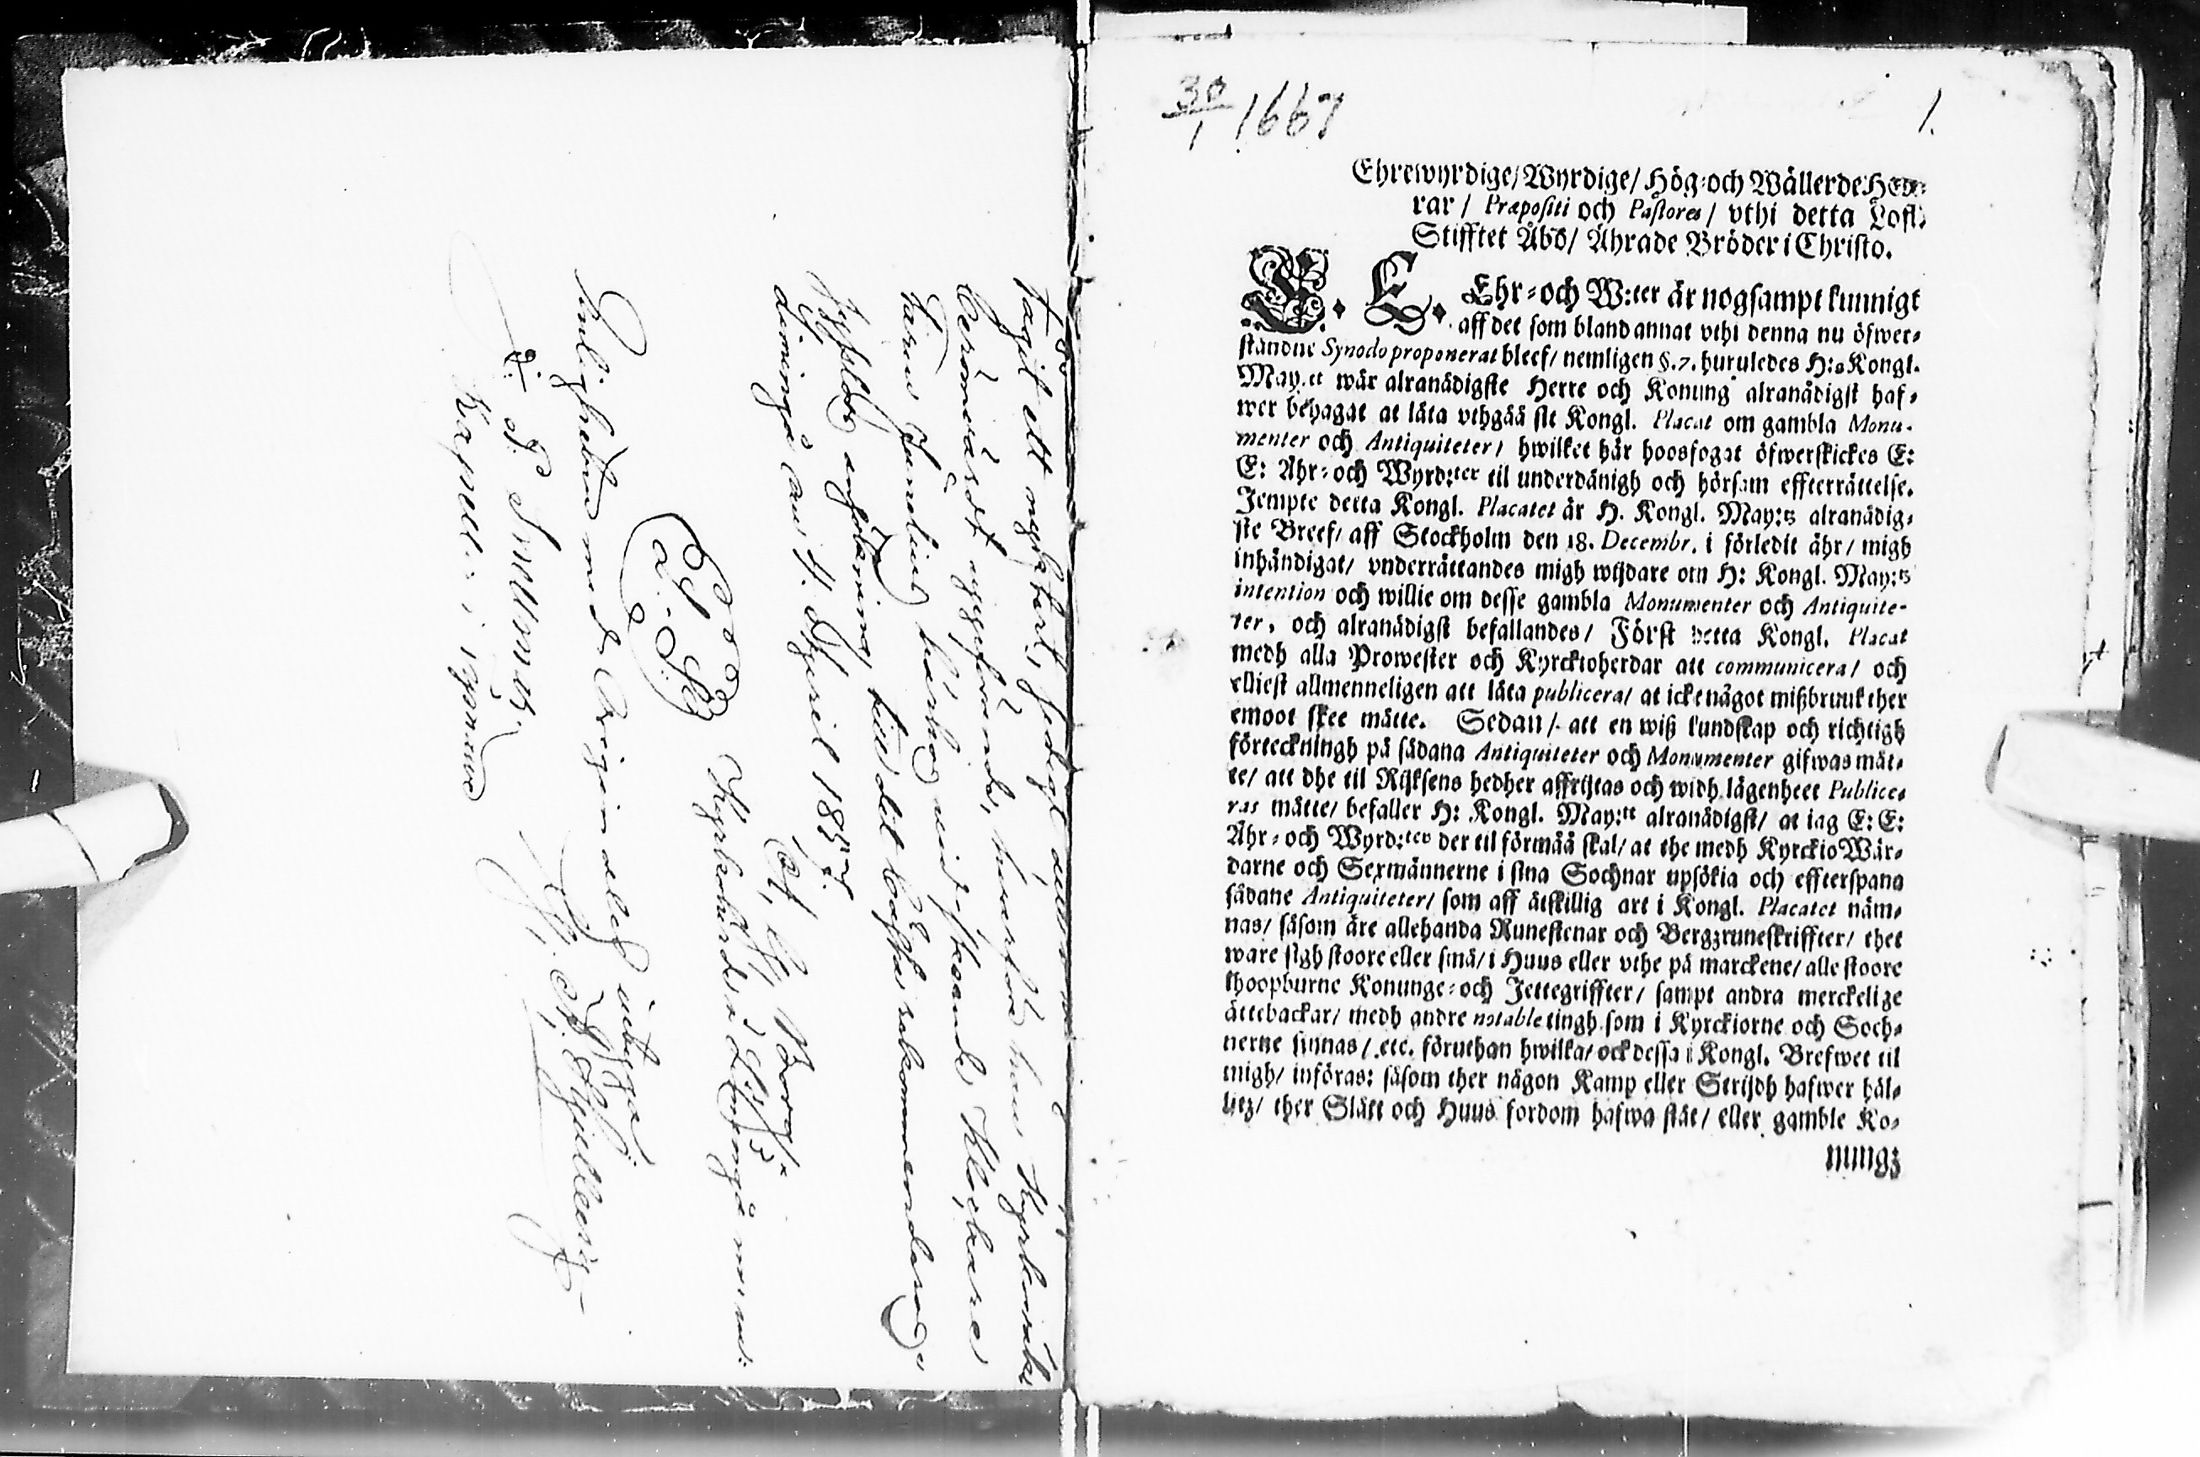 fagit ett nyktert, sedigt
berömwärdt uppförande, hwarföre hans Kyrkowärd
Jürn Junelius härhos wid-stående Klockare
Sysslor ansökning till det bästa rekommenderas
dimingå den 4. April 1857.
C. G. Borg
Kyrkoherde i Limingå
(L. S.)
Enligheten med Originalet intyga
A. F. Snellman.
Kapell: i
30/1 1667
1.
Ehrewyrdige/ Wyrdige/ Hög-och Wällerde Her-
rar / Præpositi och Pastores/ vthi detta Lofl:
Stifftet Åbo/ Ährade Bröder i Christo.
E. E. Ehr-och W:ter är nogsampt kunnigt
aff det som bland annat vthi denna nu öfwer-
ståndne Synodo proponerat bleef/ nemligen §.7. huruledes H:s Kongl.
May.tt wår alranådigste Herre och Konung alranådigst haf-
wer behagat at låta vthgåå sit Kongl. Placat om gambla Monu-
menter och Antiquiteter/ hwilket här hoosfogat öfwerskickes E:
E: Ähr-och Wyrd:ter til underdånigh och hörsam effterrättelse.
Jempte detta Kongl. Placatet är H. Kongl. May:tz alranådig-
ste Breef/ aff Stockholm den 18. Decembr. i förledit åhr/ migh
inhändigat/ vnderrättandes migh wijdare om H: Kongl. May:tz
intention och willie om desse gambla Monumenter och Antiquite-
ter, och alranådigst befallandes/ Först detta Kongl. Placat
medh alla Prowester och Kyrckioherdar att communicera/ och
elliest allmenneligen att låta publicera/ at icke något mißbruuk ther
emoot skee måtte. Sedan/ att en wiß kundskap och richtigh
förteckningh på sådana Antiquiteter och Monumenter gifwas måt-
te/ att dhe til Rijksens hedher affrijtas och widh lägenheet Publice-
ras måtte/ befaller H: Kongl. May:tt alranådigst/ at iag E: E:
Ähr-och Wyrd:ter der til förmåå skal/ at the medh Kyrckio Wär-
darne och Sexmännerne i sina Sochnar upsökia och effterspana
sådane Antiquiteter/ som aff åtskillig art i Kongl. Placatet näm-
nas/ såsom äre allehanda Runestenar och Bergzruneskriffter/ thet
ware sigh stoore eller små/ i Huus eller vthe på marckene/ alle stoore
ihoopburne Konunge-och Jettegriffter/ sampt andra merckelige
ättebackar/ medh andre notable tingh som i Kyrckiorne och Soch-
nerne finnas/ etc. föruthan hwilka/ ock dessa i Kongl. Brefwet til
migh/ införas: såsom ther någon Kamp eller Strijdh hafwer hål-
litz/ ther Slått och Huus fordom hafwa ståt/ eller gamble Ko-
nungz